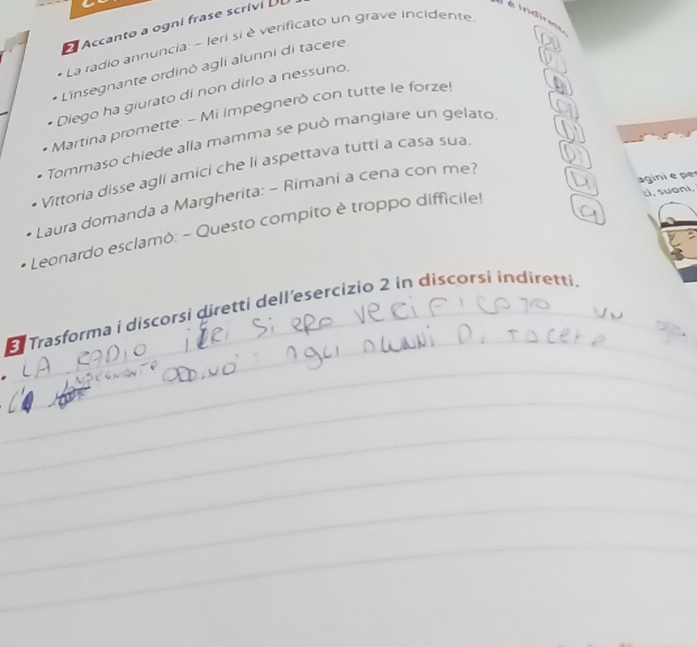 2 Accanto a ogni frase scrivi DD
• La radio annuncia: – Ieri si è verificato un grave incidente.
• L'insegnante ordinò agli alunni di tacere.
• Diego ha giurato di non dirlo a nessuno.
• Martina promette: – Mi impegnerò con tutte le forze!
• Tommaso chiede alla mamma se può mangiare un gelato.
• Vittoria disse agli amici che li aspettava tutti a casa sua.
• Laura domanda a Margherita: – Rimani a cena con me?
• Leonardo esclamò: – Questo compito è troppo difficile!
agini e per
ti, suoni,
3 Trasforma i discorsi diretti dell'esercizio 2 in discorsi indiretti.
• LA RADIO iERi Si ERO VERiFiCATO
agli aluNNi Di TACERE